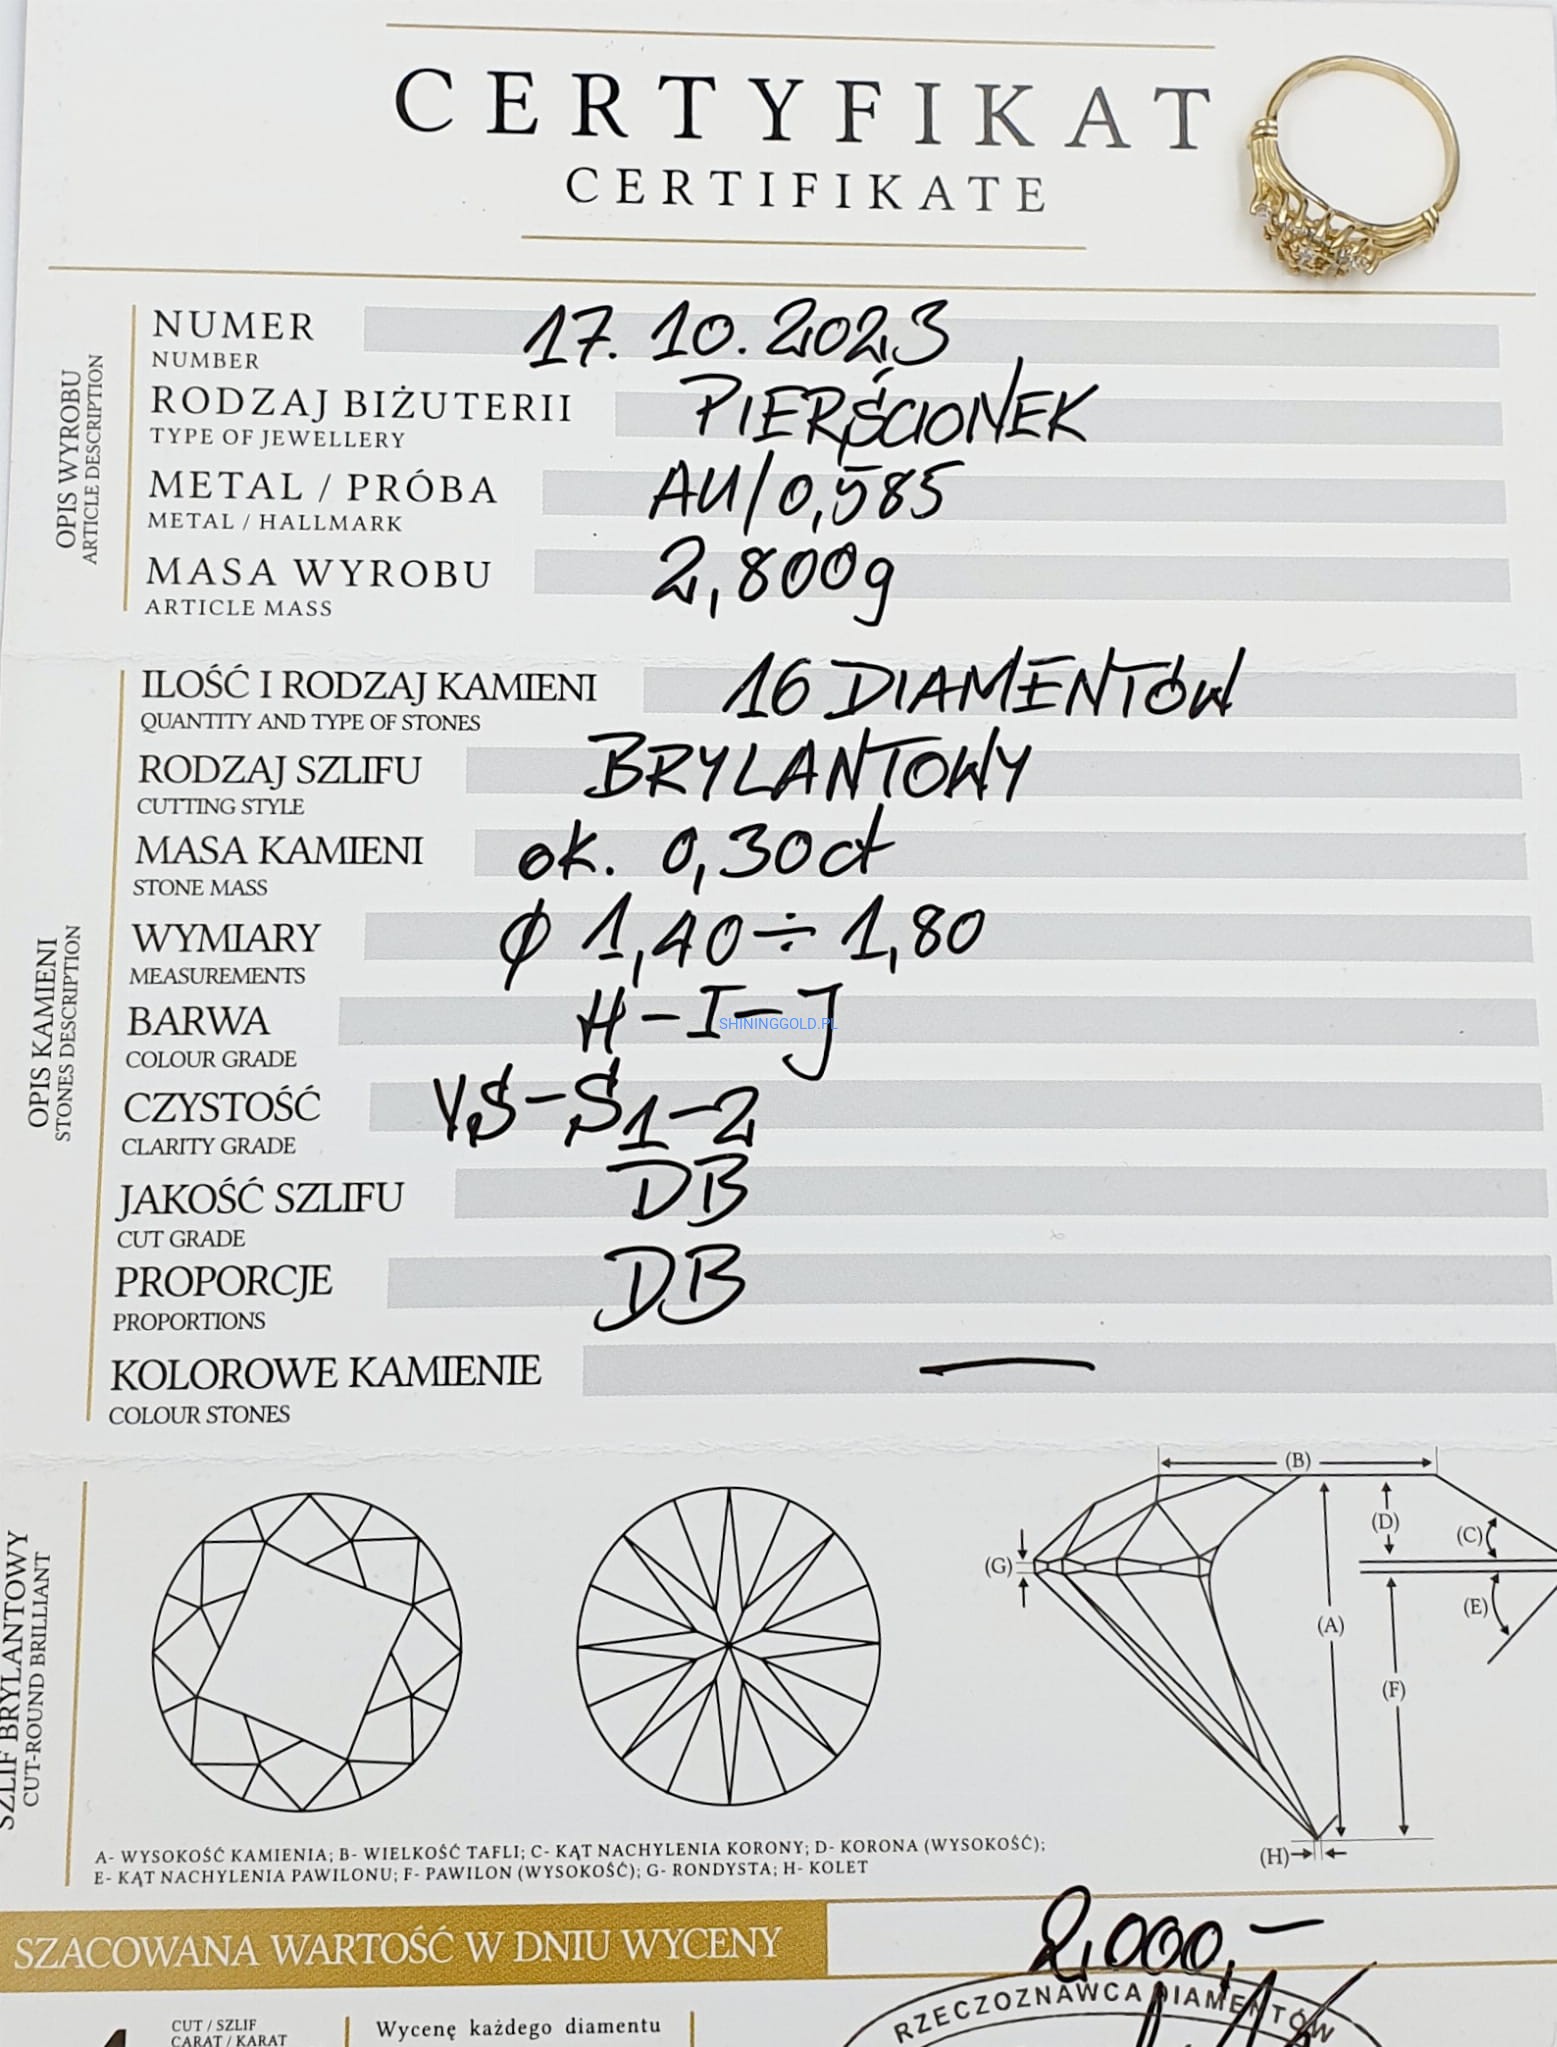 CERTYFIKAT
CERTIFIKATE
OPIS WYROBU
ARTICLE DESCRIPTION
NUMER 17.10.2023
NUMBER
RODZAJ BIŻUTERII PIERŚCIONEK
TYPE OF JEWELLERY
METAL / PRÓBA AU/0,585
METAL / HALLMARK
MASA WYROBU 2,800g
ARTICLE MASS
OPIS KAMIENI
STONES DESCRIPTION
ILOŚĆ I RODZAJ KAMIENI 16 DIAMENTÓW
QUANTITY AND TYPE OF STONES
RODZAJ SZLIFU BRYLANTOWY
CUTTING STYLE
MASA KAMIENI ok. 0,30ct
STONE MASS
WYMIARY φ 1,40÷1,80
MEASUREMENTS
BARWA H-I-J
SHININGGOLD.PL
COLOUR GRADE
CZYSTOŚĆ VS-S1-2
CLARITY GRADE
JAKOŚĆ SZLIFU DB
CUT GRADE
PROPORCJE DB
PROPORTIONS
KOLOROWE KAMIENIE —
COLOUR STONES
SZLIF BRYLANTOWY
CUT-ROUND BRILLIANT
(B)
(D)
(C)
(G)
(E)
(A)
(F)
(H)
A- WYSOKOŚĆ KAMIENIA; B- WIELKOŚĆ TAFLI; C- KĄT NACHYLENIA KORONY; D- KORONA (WYSOKOŚĆ);
E- KĄT NACHYLENIA PAWILONU; F- PAWILON (WYSOKOŚĆ); G- RONDYSTA; H- KOLET
SZACOWANA WARTOŚĆ W DNIU WYCENY 2,000,-
RZECZOZNAWCA DIAMENTÓW
CUT / SZLIF
CARAT / KARAT
Wycenę każdego diamentu